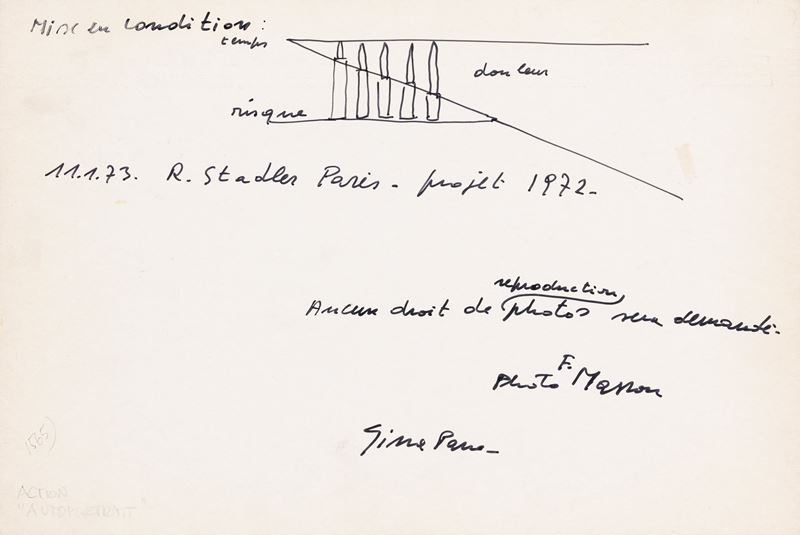 Mise en condition :
temps
douleur
risque
11.1.73. R. Stadler Paris - projet 1972-
reproduction
Aucun droit de photos sera demandé.
Photo F. Masson
Gina Pane
(505)
ACTION
"AUTOPORTRAIT"